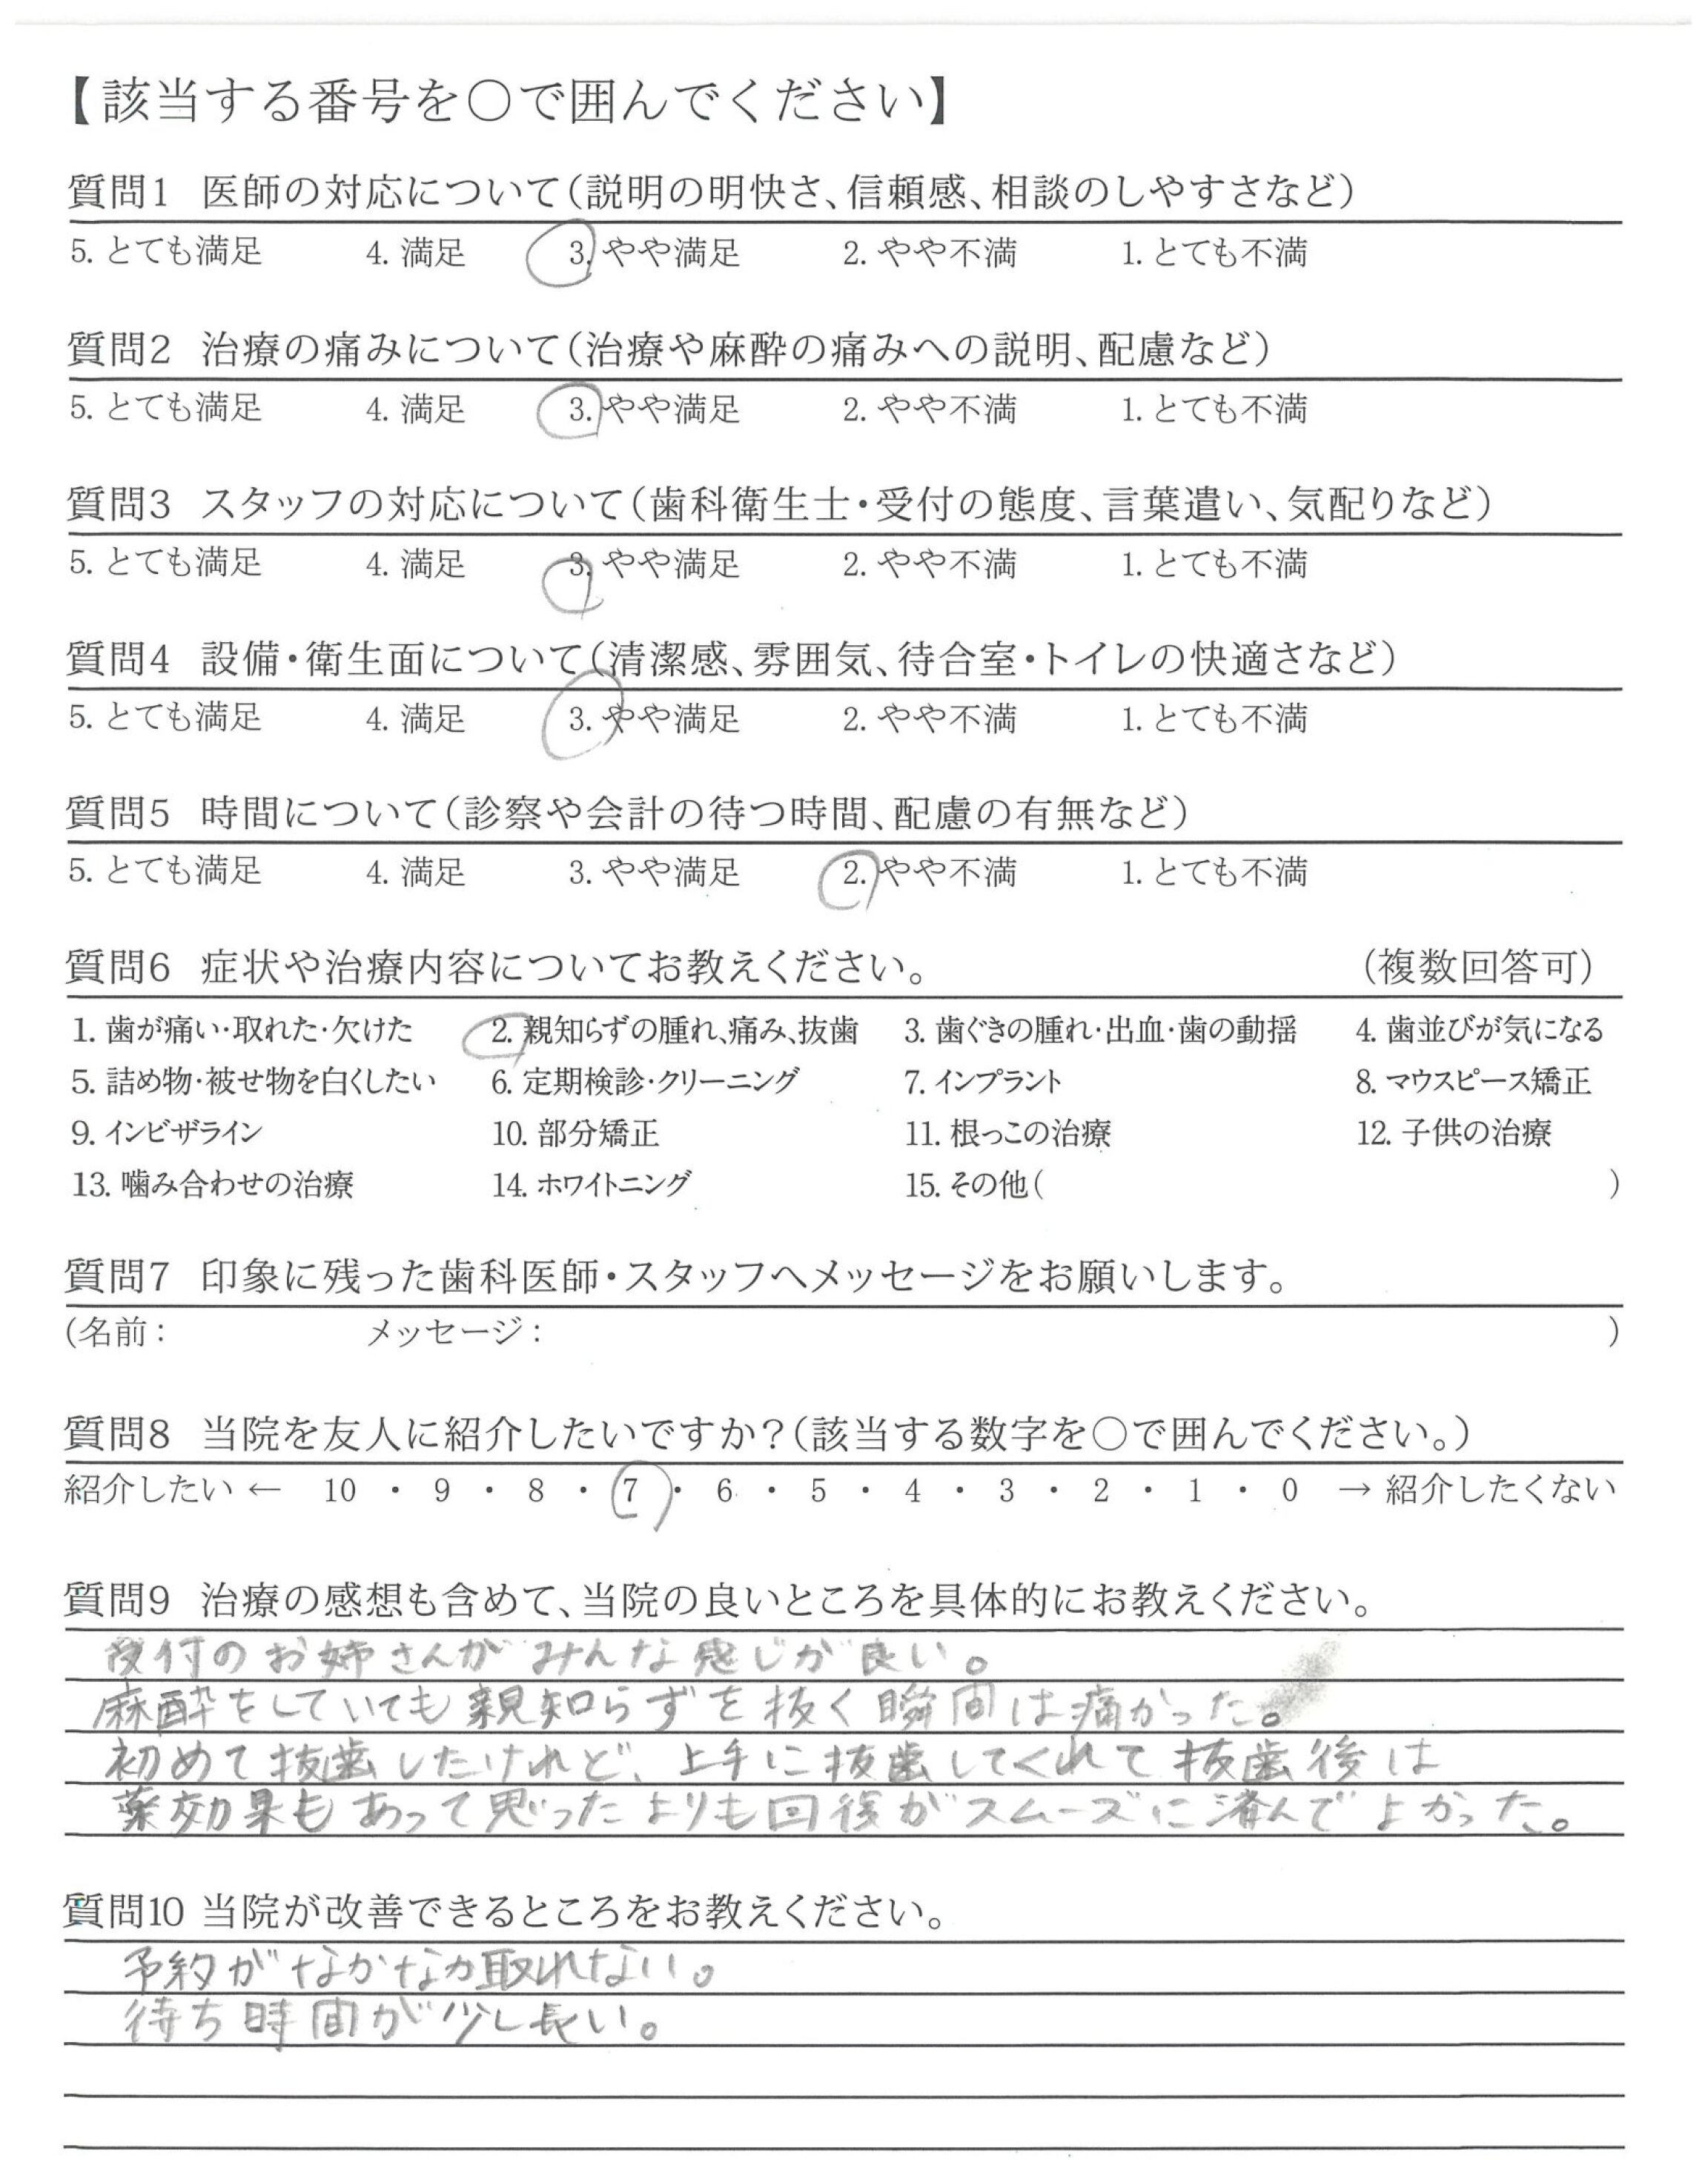 【該当する番号を〇で囲んでください】
質問1 医師の対応について（説明の明快さ、信頼感、相談のしやすさなど）
5. とても満足 4. 満足 3. やや満足 2. やや不満 1. とても不満
質問2 治療の痛みについて（治療や麻酔の痛みへの説明、配慮など）
5. とても満足 4. 満足 3. やや満足 2. やや不満 1. とても不満
質問3 スタッフの対応について（歯科衛生士・受付の態度、言葉遣い、気配りなど）
5. とても満足 4. 満足 3. やや満足 2. やや不満 1. とても不満
質問4 設備・衛生面について（清潔感、雰囲気、待合室・トイレの快適さなど）
5. とても満足 4. 満足 3. やや満足 2. やや不満 1. とても不満
質問5 時間について（診察や会計の待つ時間、配慮の有無など）
5. とても満足 4. 満足 3. やや満足 2. やや不満 1. とても不満
質問6 症状や治療内容についてお教えください。 （複数回答可）
1. 歯が痛い・取れた・欠けた 2. 親知らずの腫れ、痛み、抜歯 3. 歯ぐきの腫れ・出血・歯の動揺 4. 歯並びが気になる
5. 詰め物・被せ物を白くしたい 6. 定期検診・クリーニング 7. インプラント 8. マウスピース矯正
9. インビザライン 10. 部分矯正 11. 根っこの治療 12. 子供の治療
13. 噛み合わせの治療 14. ホワイトニング 15. その他（ ）
質問7 印象に残った歯科医師・スタッフへメッセージをお願いします。
（名前： メッセージ： ）
質問8 当院を友人に紹介したいですか？（該当する数字を〇で囲んでください。）
紹介したい ← 10 ・ 9 ・ 8 ・ 7 ・ 6 ・ 5 ・ 4 ・ 3 ・ 2 ・ 1 ・ 0 → 紹介したくない
質問9 治療の感想も含めて、当院の良いところを具体的にお教えください。
受付のお姉さんがみんな感じが良い。
麻酔をしていても親知らずを抜く瞬間は痛かった。
初めて抜歯したけれど、上手に抜歯してくれて抜歯後は
薬効果もあって思ったよりも回復がスムーズに済んでよかった。
質問10 当院が改善できるところをお教えください。
予約がなかなか取れない。
待ち時間が少し長い。